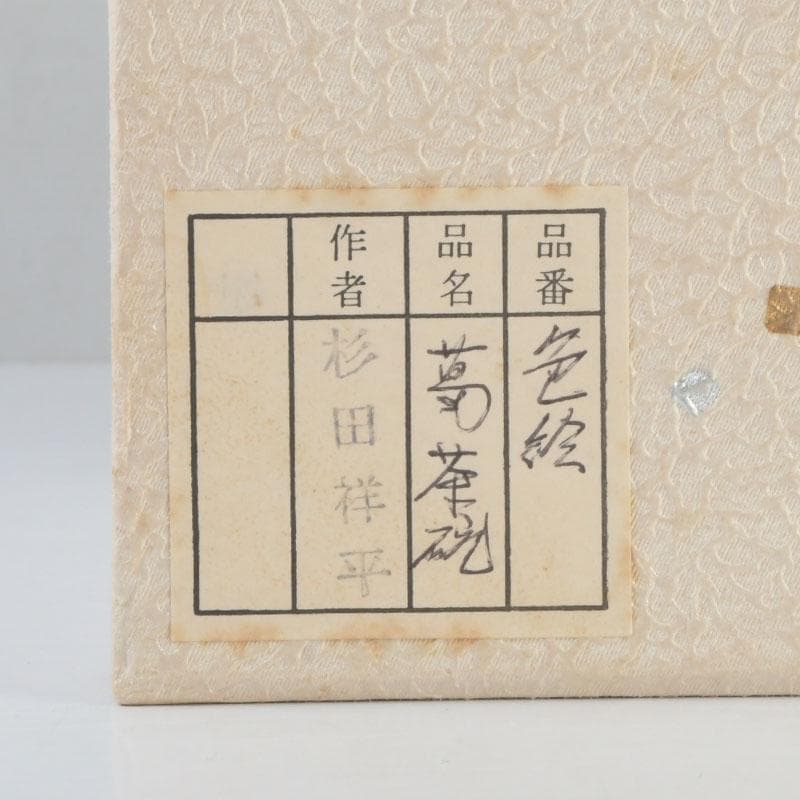 品番
色絵
品名
葛茶碗
作者
杉田祥平